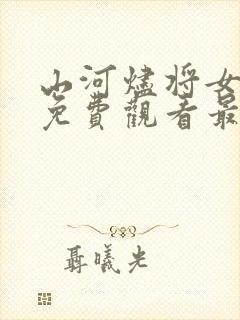 山河燼將女
免費觀看最
聶曦光